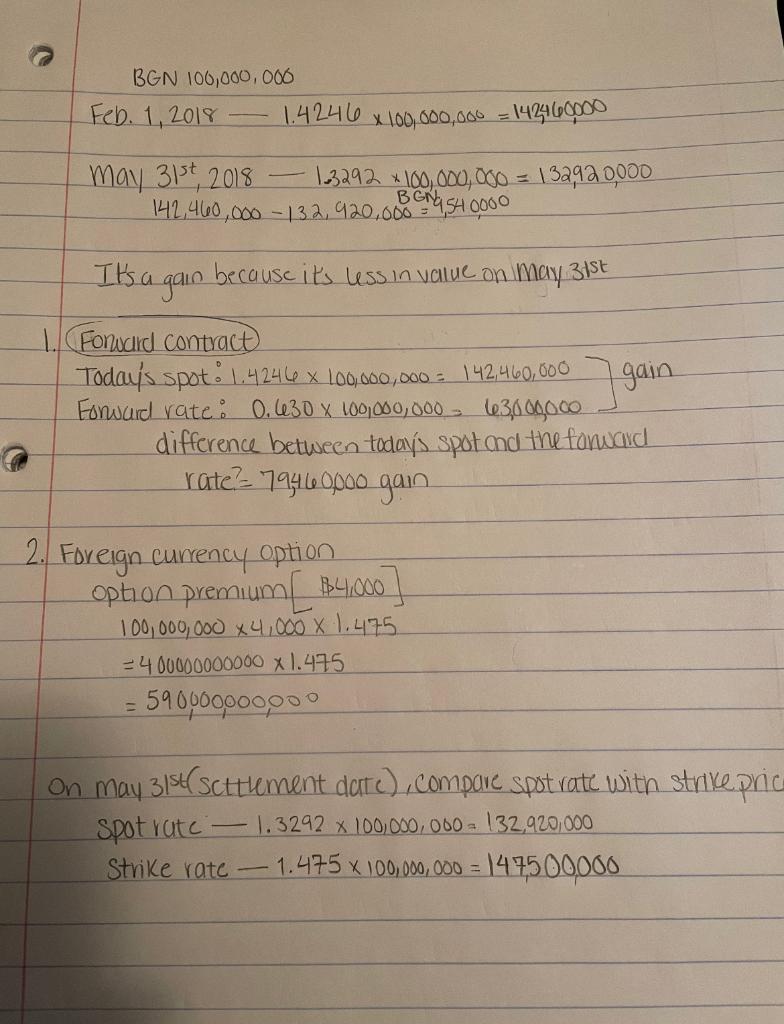 BGN 100,000,000
Feb. 1, 2018 — 1.4246 x 100,000,000 = 142,460,000
May 31st, 2018 — 1.3292 x 100,000,000 = 132,920,000
142,460,000 - 132,920,000 = BGN 9,540,000
It's a gain because its less in value on May 31st
1. Forward contract
Today's spot: 1.4246 x 100,000,000 = 142,460,000 ] gain
Forward rate: 0.630 x 100,000,000 = 63,000,000
difference between today's spot and the forward
rate? = 79,460,000 gain
2. Foreign currency option
option premium [ $4,000 ]
100,000,000 x 4,000 x 1.475
= 400000000000 x 1.475
= 590,000,000,000
On may 31st (settlement date), compare spot rate with strike pric
Spot rate — 1.3292 x 100,000,000 = 132,920,000
Strike rate — 1.475 x 100,000,000 = 147,500,000